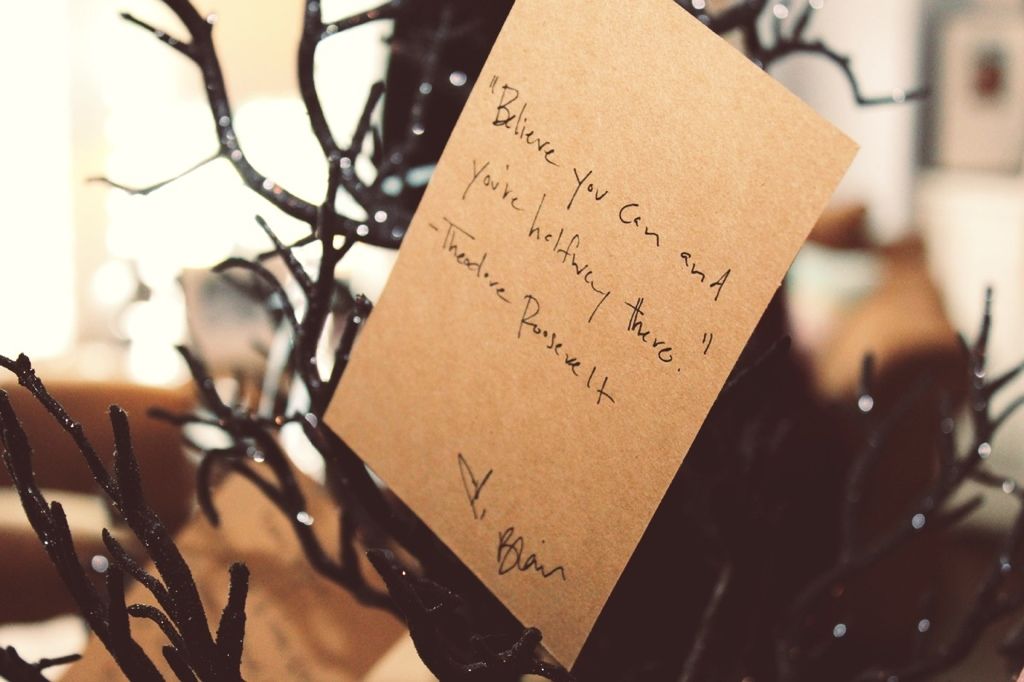 "Believe you can and
you're halfway there."
-Theodore Roosevelt
♡, Blair